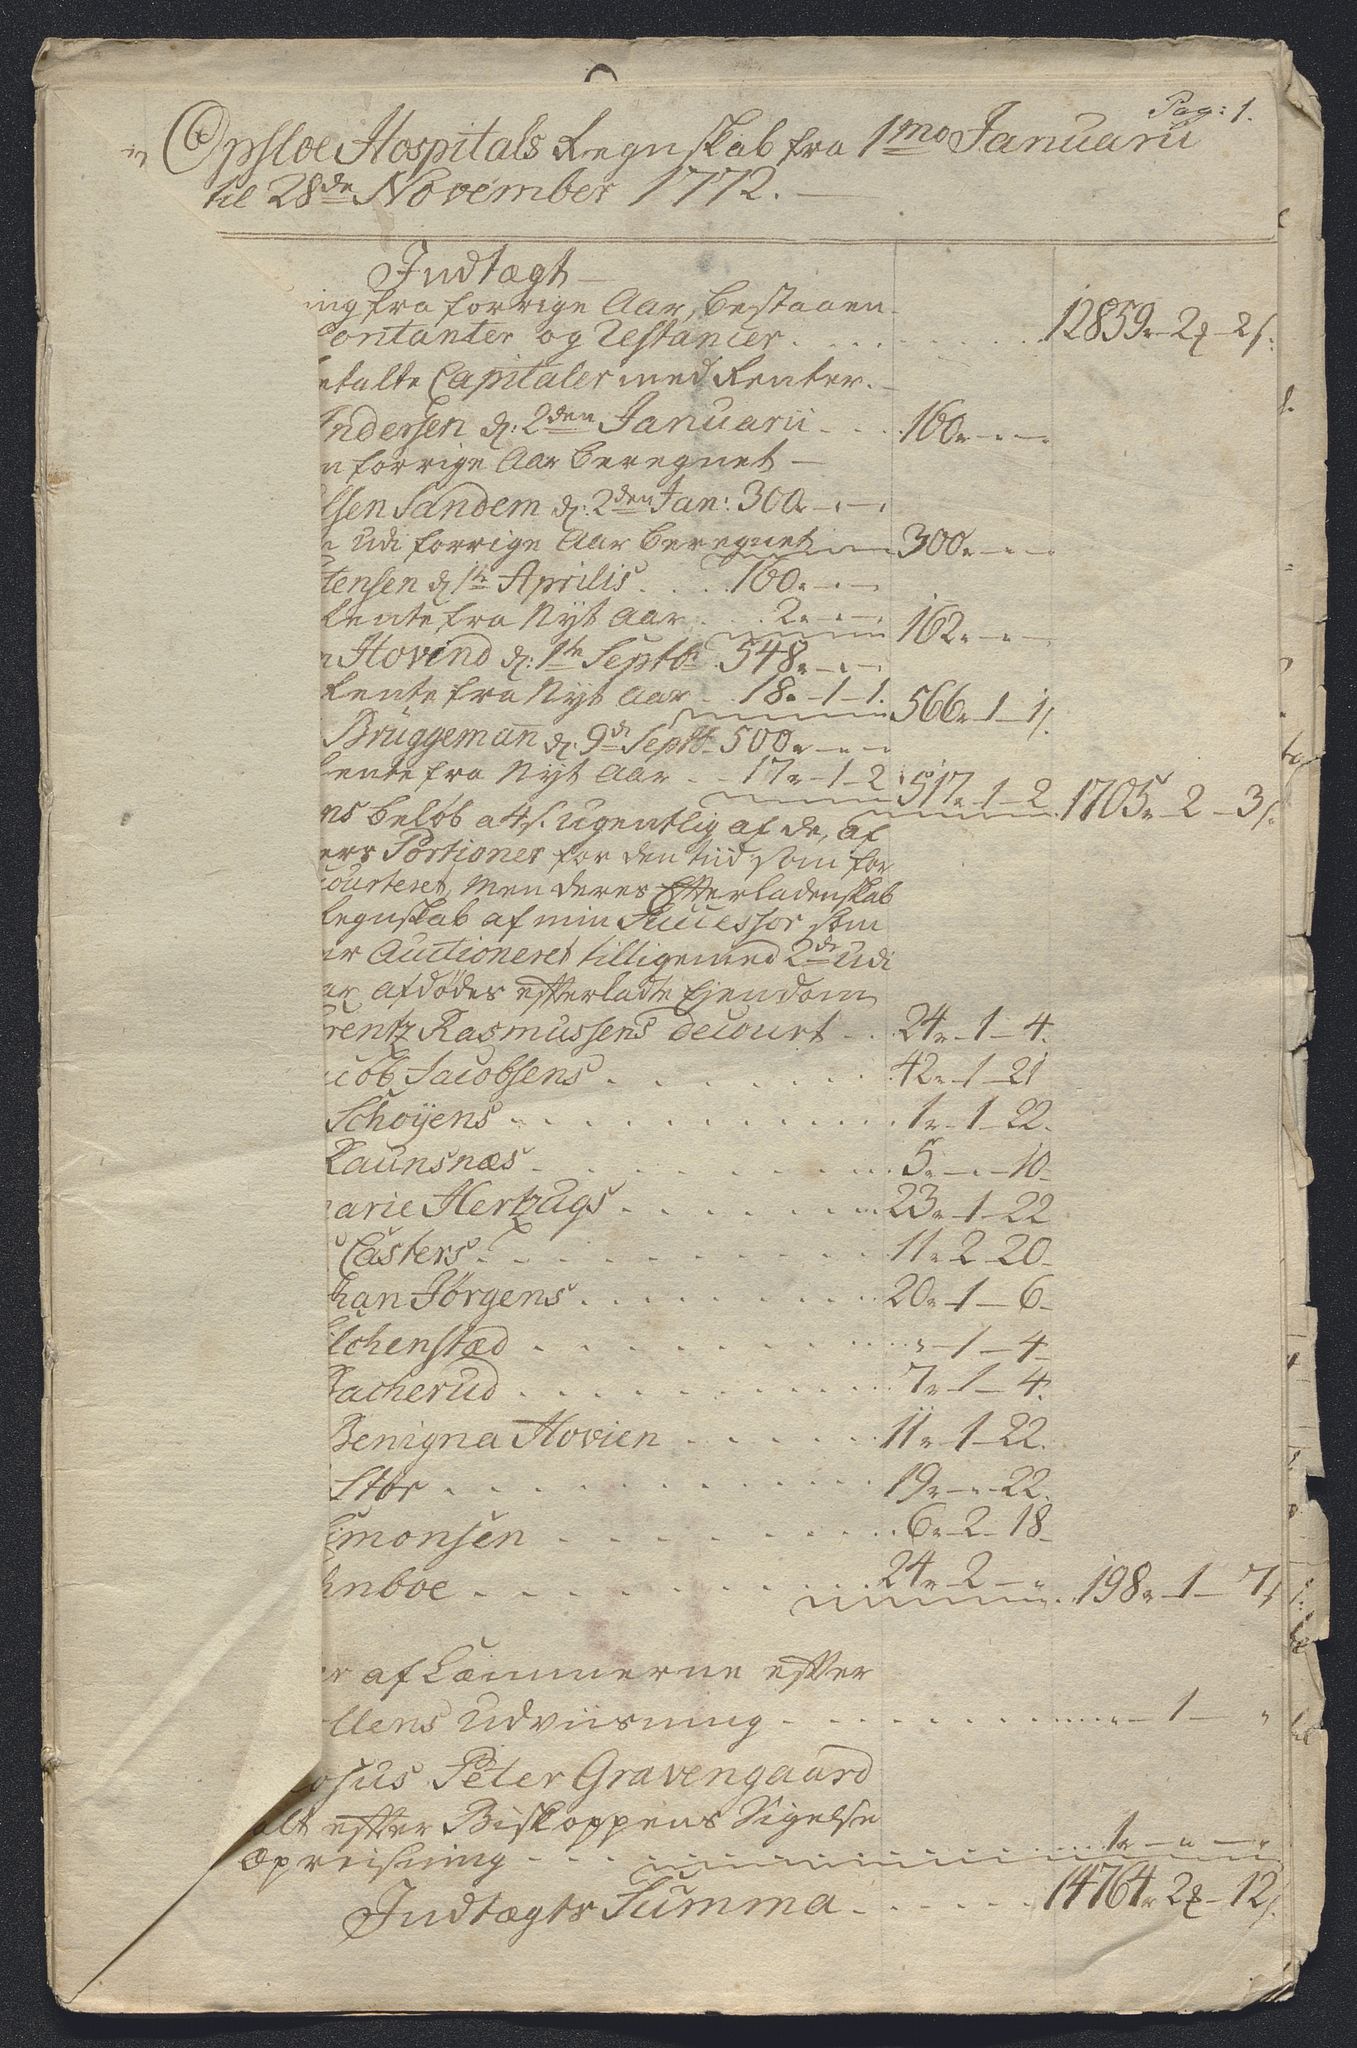 Pag: 1.
Opsloe Hospitals Regnskab fra 1mo Januarii
til 28de November 1772.
Indtægt
ing fra forrige Aar, bestaaen
Contanter og Restancer . . . . . . 12859„ - 2 - 2 s.
etalte Capitaler med Renter.
Andersen d: 2den Januarii - . . 160„ - „ - „
n forrige Aar beregnet -
lsen Sandem d: 2den Jan: 300„ - „ - „
n udi forrige Aar beregnet 300„ - „ - „
tensen d 1te Aprilis . . . 160„ - „ - „
Rente fra Nyt Aar . . 2„ - „ - „ 162„ - „ - „
n Hovind d: 1te Septbr 548„ - „ - „
Rente fra Nyt Aar . . 18„ - 1 - 1. 566„ - 1 - 1 s.
Brüggeman d: 9de Septbr 500„ - „ - „
Rente fra Nyt Aar . . 17„ - 1 - 2 517„ - 1 - 2 1705„ - 2 - 3 s.
ns beløb a 4 s. Ugentlig af de, af
ers Portioner for den tiid som for
courteret, men deres Efterladenskab
Regnskab af min Successor som
er Auctioneret tilligemed 2de udi
ar afdödes efterladte Ejendom
rentz Rasmussens decourt . . 24„ - 1 - 4.
acob Jacobsens . . . . . . 42„ - 1 - 21
Schoÿens . . . . . . . . 1„ - 1 - 22.
Raunsnæs . . . . . . . . 5„ - „ - 10
marie Hertzugs . . . . . . 23„ - 1 - 22
Casters . . . . . . . . 11„ - 2 - 20
han Jörgens . . . . . . . 20„ - 1 - 6
ilchenstæd . . . . . . . „ - 1 - 4
Racherud . . . . . . . . 7„ - 1 - 4.
Benigna Hovien . . . . . 11„ - 1 - 22.
Stör . . . . . . . . . 19„ - „ - 22.
Simonsen . . . . . . . . 6„ - 2 - 18
nboe . . . . . . . . . 24„ - 2 - „ 198„ - 1 - 7 s
er af Lemmerne efter
llens Udviisning . . . . . . . . „ - 1 - „
Peter Gravengaard
alt efter Biskoppens Sigelse
Opreisning . . . . . . . . 1„ - „ - „
Indtægts Summa . . . . . 14764„ 2 - 12 s.